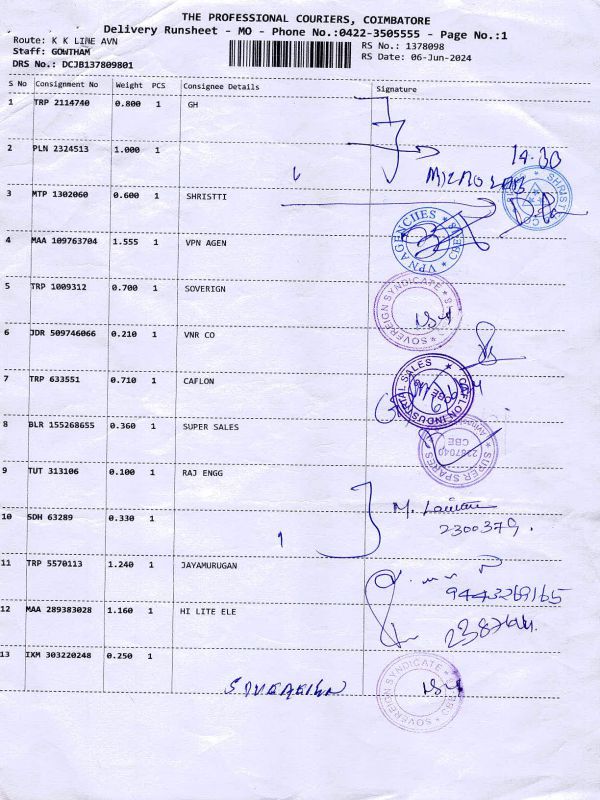 THE PROFESSIONAL COURIERS, COIMBATORE
Delivery Runsheet - MO - Phone No.:0422-3505555 - Page No.:1
Route: K K LINE AVN
Staff: GOWTHAM
DRS No.: DCJB137809801
RS No.: 1378098
RS Date: 06-Jun-2024
S No Consignment No Weight PCS Consignee Details Signature
1 TRP 2114740 0.800 1 GH
2 PLN 2324513 1.000 1
14.30
3 MTP 1302060 0.600 1 SHRISTTI
4 MAA 109763704 1.555 1 VPN AGEN
VPN AGENCHES
5 TRP 1009312 0.700 1 SOVERIGN
SOVEREIGN SYNDICATE
6 JDR 509746066 0.210 1 VNR CO
7 TRP 633551 0.710 1 CAFLON
CAFLON INDUSTRIAL SALES
CBE
8 BLR 155268655 0.360 1 SUPER SALES
SUPER SPARES
2387040
CBE
9 TUT 313106 0.100 1 RAJ ENGG
10 SDH 63289 0.330 1
2300379.
11 TRP 5570113 1.240 1 JAYAMURUGAN
9443269165
12 MAA 289383028 1.160 1 HI LITE ELE
13 IXM 303220248 0.250 1
SOVEREIGN SYNDICATE